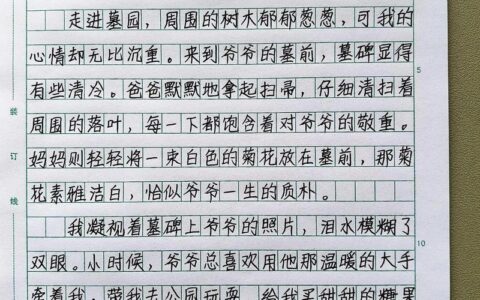 走进墓园，周围的树木郁郁葱葱，可我的
心情却无比沉重。来到爷爷的墓前，墓碑显得
有些清冷。爸爸默默地拿起扫帚，仔细清扫着
周围的落叶，每一下都饱含着对爷爷的敬重。
妈妈则轻轻将一束白色的菊花放在墓前，那菊
花素雅洁白，恰似爷爷一生的质朴。
我凝视着墓碑上爷爷的照片，泪水模糊了
双眼。小时候，爷爷总喜欢用他那温暖的大手
牵着我，带我去公园玩耍，给我买甜甜的糖果
装
订
线
5
10